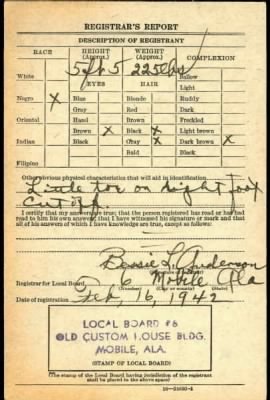 REGISTRAR'S REPORT
DESCRIPTION OF REGISTRANT
RACE HEIGHT (Approx.) WEIGHT (Approx.) COMPLEXION
5 ft 5 225 lbs
White EYES HAIR Sallow
Light
Negro X Blue Blonde Ruddy
Gray Red Dark
Oriental Hazel Brown Freckled
Brown X Black X Light brown
Indian Black Gray X Dark brown X
Bald Black
Filipino
Other obvious physical characteristics that will aid in identification
Little toe on right foot
cut off.
I certify that my answers are true; that the person registered has read or has had
read to him his own answers; that I have witnessed his signature or mark and that
all of his answers of which I have knowledge are true, except as follows:
Bessie L. Anderson
Registrar for Local Board Mobile Ala
(Number) (City or county) (State)
Date of registration Feb, 16, 1942
LOCAL BOARD #6
OLD CUSTOM HOUSE BLDG.
MOBILE, ALA.
(STAMP OF LOCAL BOARD)
(The stamp of the Local Board having jurisdiction of the registrant
shall be placed in the above space.)